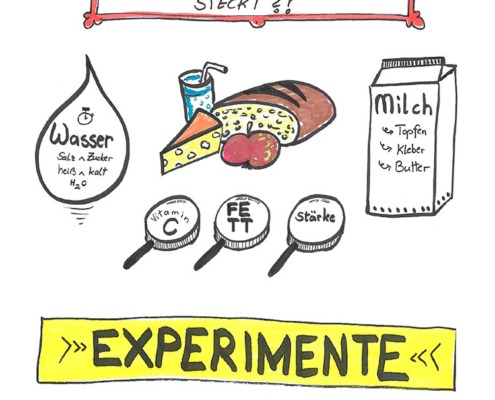 STECKT ?!
Wasser
Salz ^ Zucker
heiß ^ kalt
H2O
Milch
Topfen
Kleber
Butter
Vitamin
C
FE
TT
Stärke
>>> EXPERIMENTE <<<